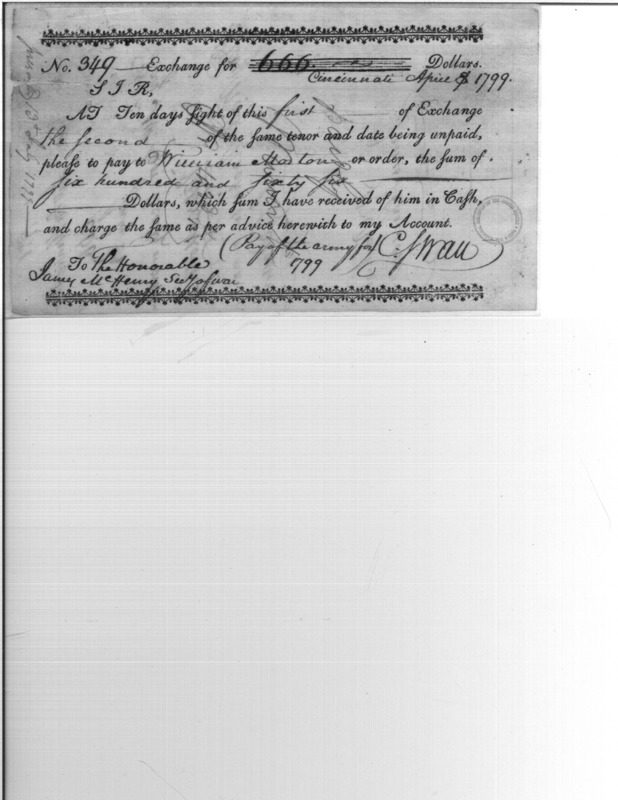 No. 349 Exchange for 666. Dollars.
Cincinnati April 8 1799.
SIR,
AT Ten days sight of this first of Exchange
the second of the same tenor and date being unpaid,
please to pay to William or order, the sum of
six hundred and sixty six
Dollars, which sum I have received of him in Cash,
and charge the same as per advice herewith to my Account.
(Pay of the army for) C. Swan
To The Honorable 799
James McHenry Secy of War